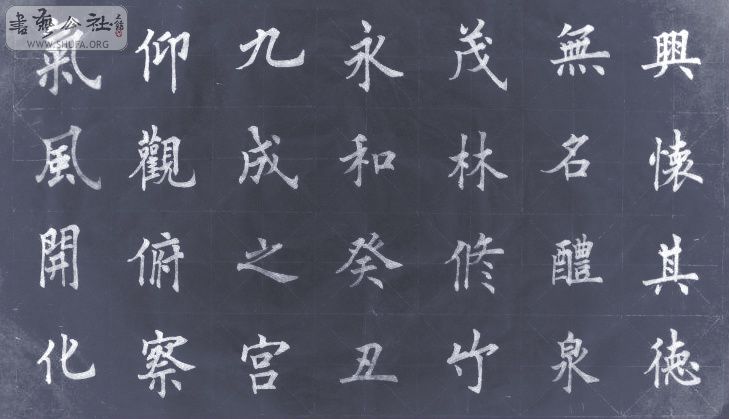 興懷其德
無名醴泉
茂林修竹
永和癸丑
九成之宮
仰觀俯察
氣風開化
書藝公社
WWW.SHUFA.ORG